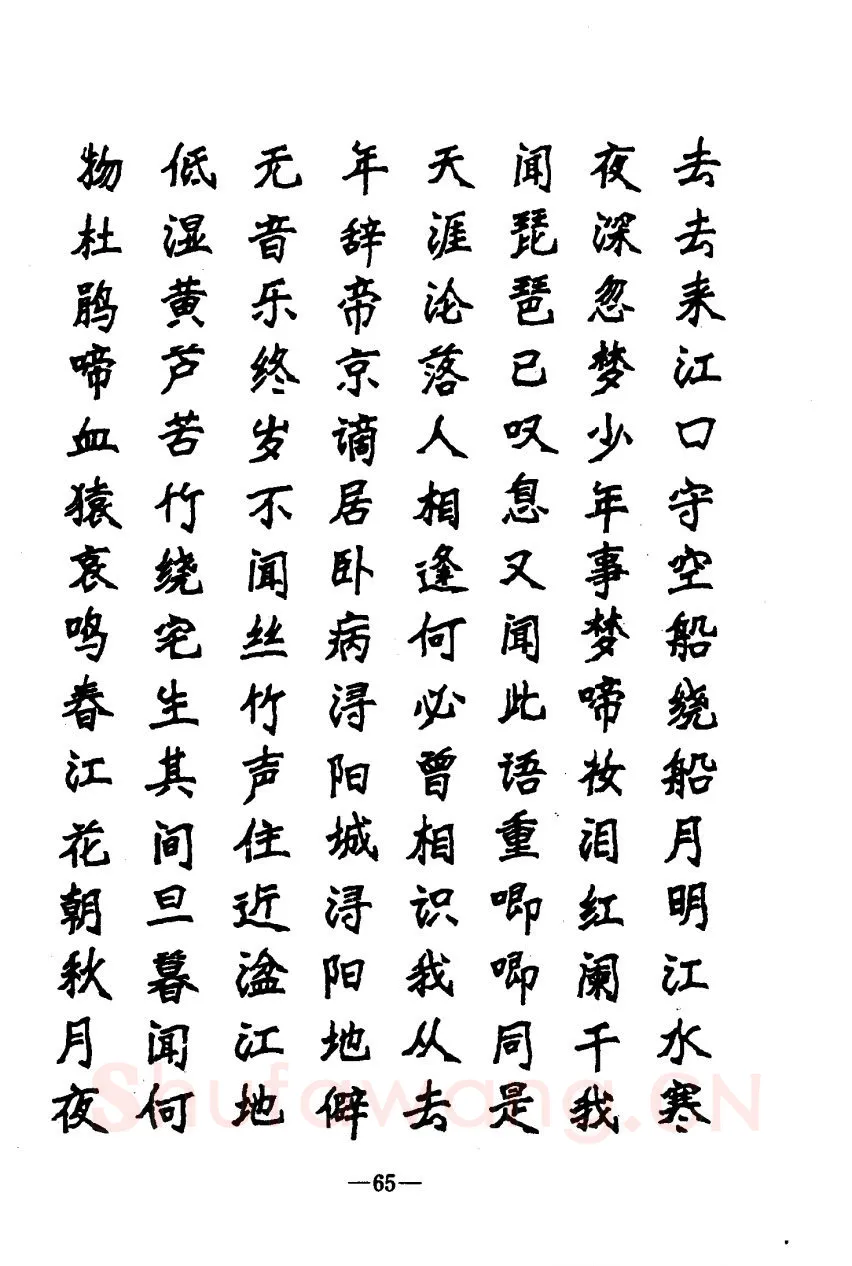 去去来江口守空船绕船月明江水寒
夜深忽梦少年事梦啼妆泪红阑干我
闻琵琶已叹息又闻此语重唧唧同是
天涯沦落人相逢何必曾相识我从去
年辞帝京谪居卧病浔阳城浔阳地僻
无音乐终岁不闻丝竹声住近湓江地
低湿黄芦苦竹绕宅生其间旦暮闻何
物杜鹃啼血猿哀鸣春江花朝秋月夜
—65—
Shufawang.CN